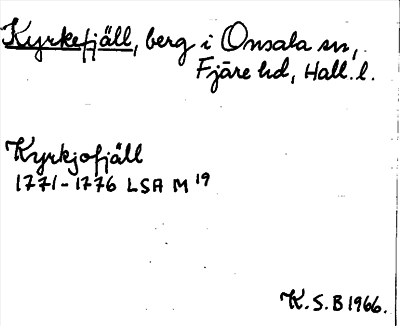 Kyrkefjäll, berg i Onsala sn,
Fjäre hd, Hall. l.
Kyrkjofjäll
1771-1776 LSA M 19
K. S. B 1966.